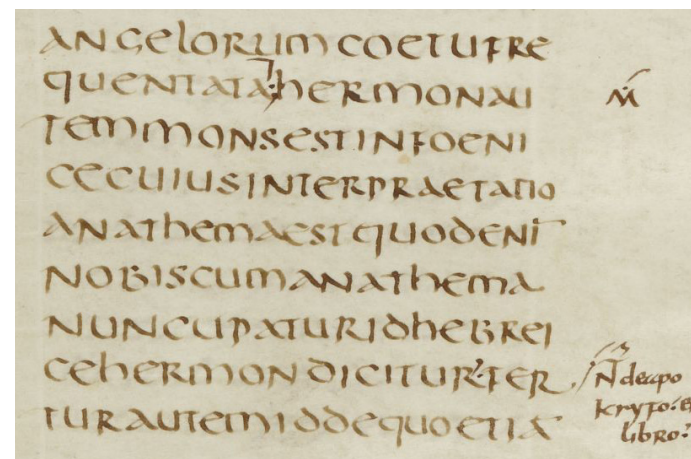 ANGELORUMCOETUFRE
QUENTATA:HERMONAU
M̄
TEMMONSESTINFOENI
CECUIUSINTERPRAETATIO
ANATHEMAESTQUODENĪ
NOBISCUMANATHEMA
NUNCUPATURIDHEBREI
CEHERMONDICITUR:FER
N̄ deapo
TURAUTEMIDDEQUOETIĀ
libro: